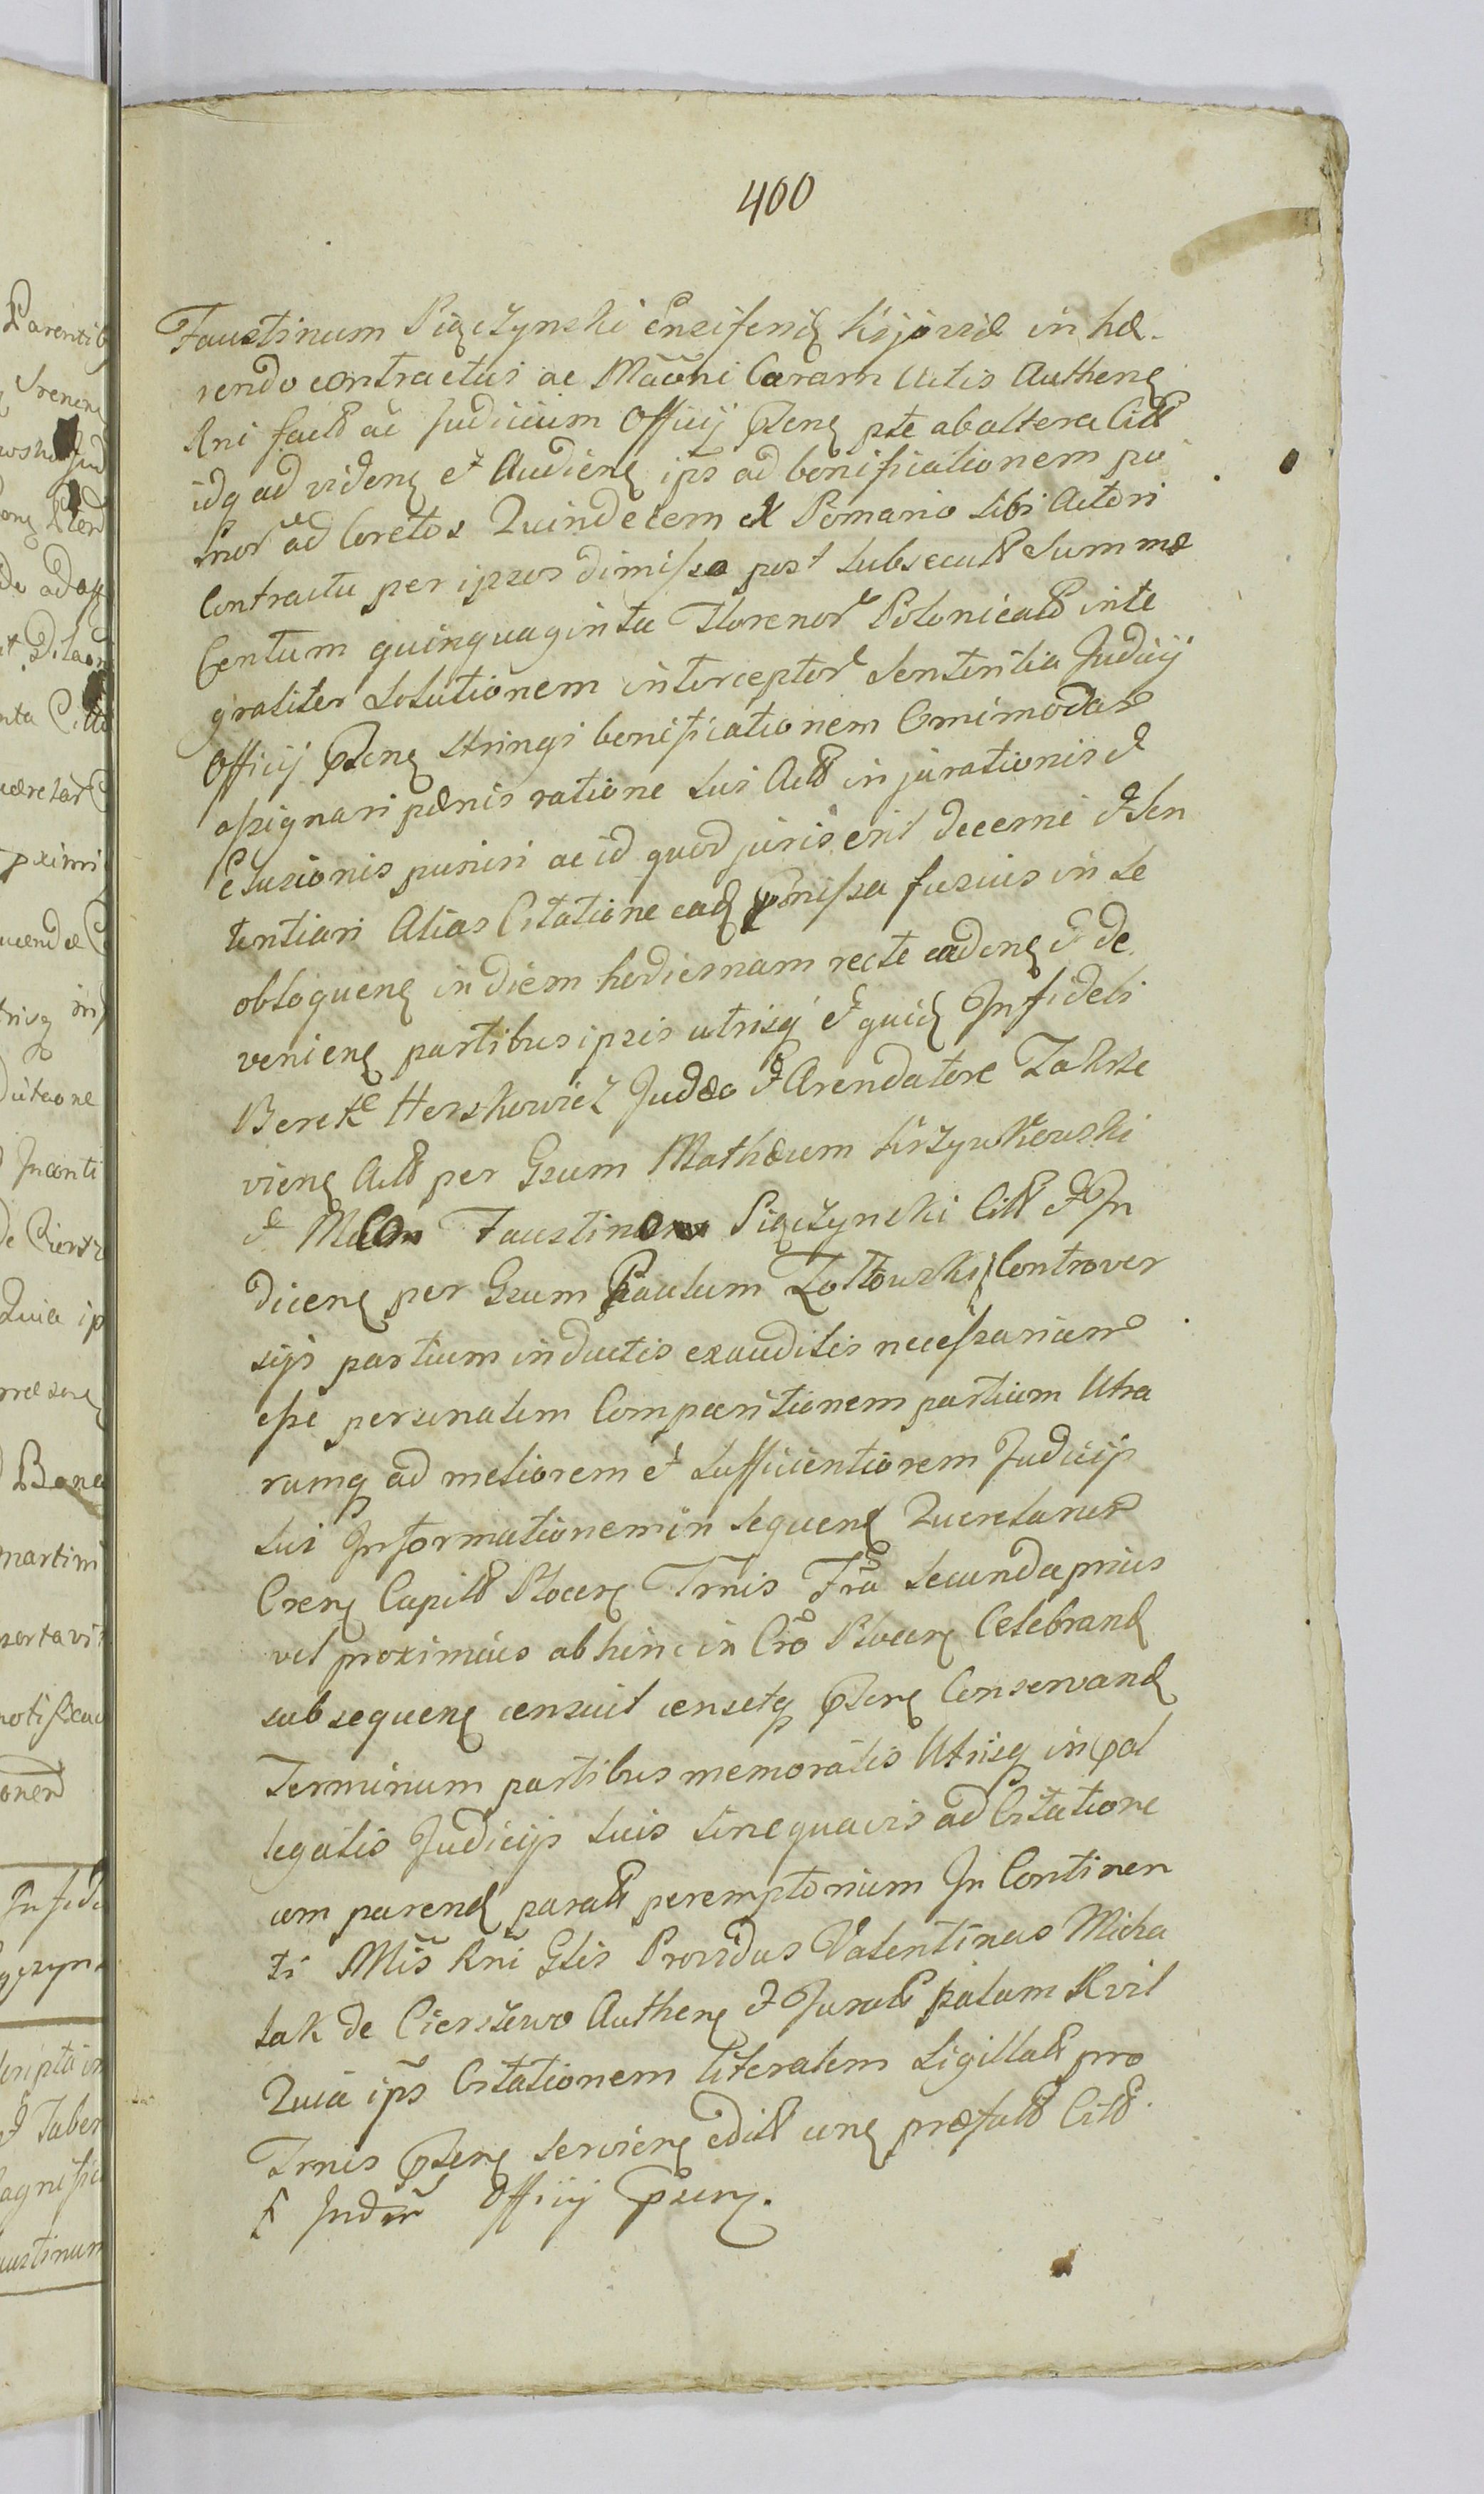 400
Faustinum Pięczynski Ensiferid Kijoviæ in hæ-
rendo contractus ac Mãõni Coram Actis Authenę
Rni fact ac Judicium Officij Pzenę pte ab altera Citt
idq ad videnę et Audienę ips ad bonificationem po
mor ad Coretos Quindecem ex Pomario sibi Actori
Contractu per ipsos dimissa post subsecutt Summæ
Centum quinquaginta Florenor Polonicalt inte
graliter solutionem interceptor Sententia Judicij
Officij Pzenę stringi bonificationem Omnimodam
assignari pænis ratione sui Actt injurationis et
Elusionis puniri ac id quod juris erit decerni et Sen
tentiari Alias Citatione eadę pmissa fusius in se
obloquenę in diem hodiernam recte cadenę et de
venienę partibus ipsis utrisq et quidę Infideli
Berek Herszkowicz Judæo et Arendatore Zakrze
vienę Actt per Gsum Mathæum Krzywkowski
et Faustino Pięczynski Citt et In
dicenę per Gsum Paulum Zołtowski Controver
sijs partium inductis exauditis necessariam
esse personalem Comparitionem partium Utra
rumq ad meliorem et sufficientiorem Judicijs
sui Informationem in sequenę Querelarum
Crenę Capitt Plocenę Trnis Fra secunda prius
vel proximius abhinc in Cro Plocenę Celebrand
subsequenę censuit censetq Pzenę Conservand
Terminum partibus memoratis Utrisq in pal
legatis Judicijs suis sine quavis ad Citatione
om parend paratt peremptorium In Continen
ti Mis Rni Glis Providus Valentinus Micha
lak de Cierszewo Authenę et Juratt palam Rvit
Quia ips Citationem literalem Sigillatt pro
Trnis Pzenę servienę edidt unę præfatt Citt
et Officij Pzenę.